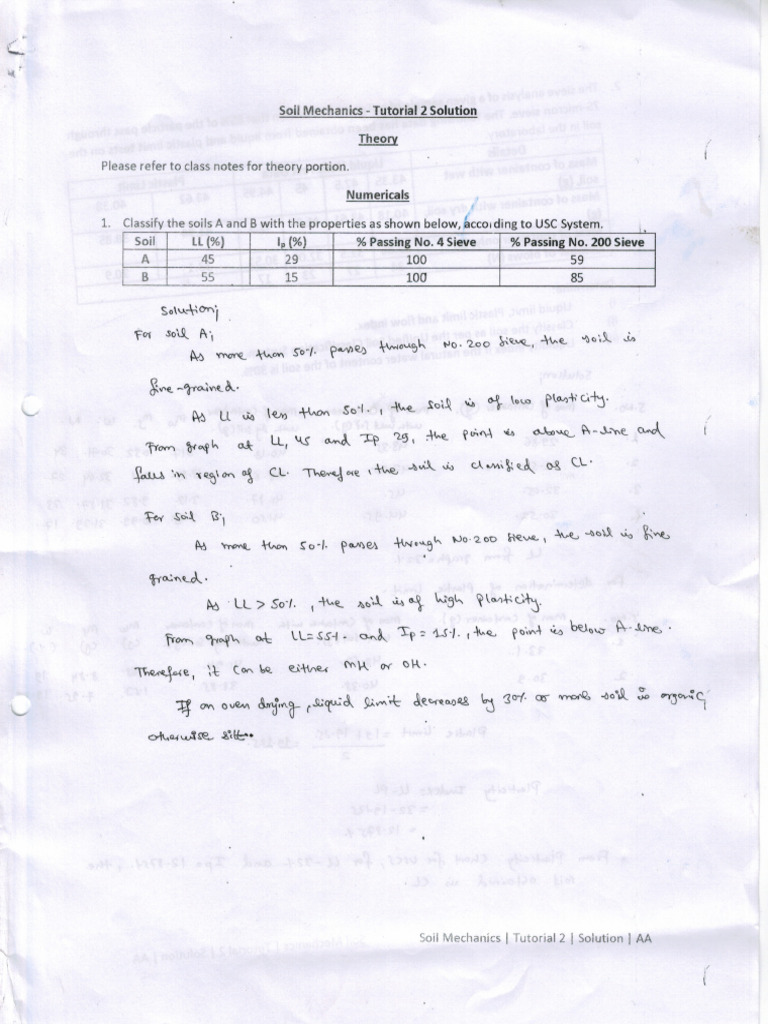 Soil Mechanics - Tutorial 2 Solution
Theory
Please refer to class notes for theory portion.
Numericals
1. Classify the soils A and B with the properties as shown below, according to USC System.
Soil LL (%) Ip (%) % Passing No. 4 Sieve % Passing No. 200 Sieve
A 45 29 100 59
B 55 15 100 85
Solution;
For soil A;
As more than 50% passes through No. 200 Sieve, the soil is
fine-grained.
As LL is less than 50%, the soil is of low plasticity.
From graph at LL, 45 and Ip 29, the point is above A-line and
falls in region of CL. Therefore, the soil is classified as CL.
For soil B;
As more than 50% passes through No. 200 sieve, the soil is fine
grained.
As LL > 50%, the soil is of high plasticity.
From graph at LL = 55% and Ip = 15%, the point is below A-line.
Therefore, it can be either MH or OH.
If on oven drying, liquid limit decreases by 30% or more soil is organic,
otherwise silt.
Soil Mechanics | Tutorial 2 | Solution | AA